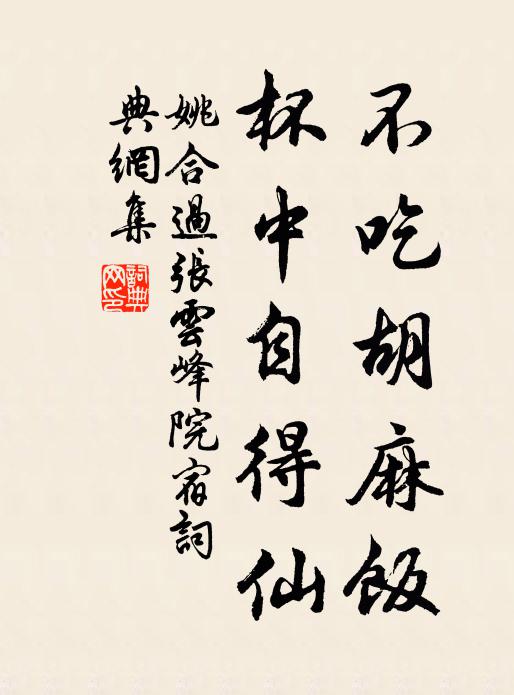 不吃胡麻飯
杯中自得仙
姚合過張雲峰院宿詞
典網集
詞典
网印